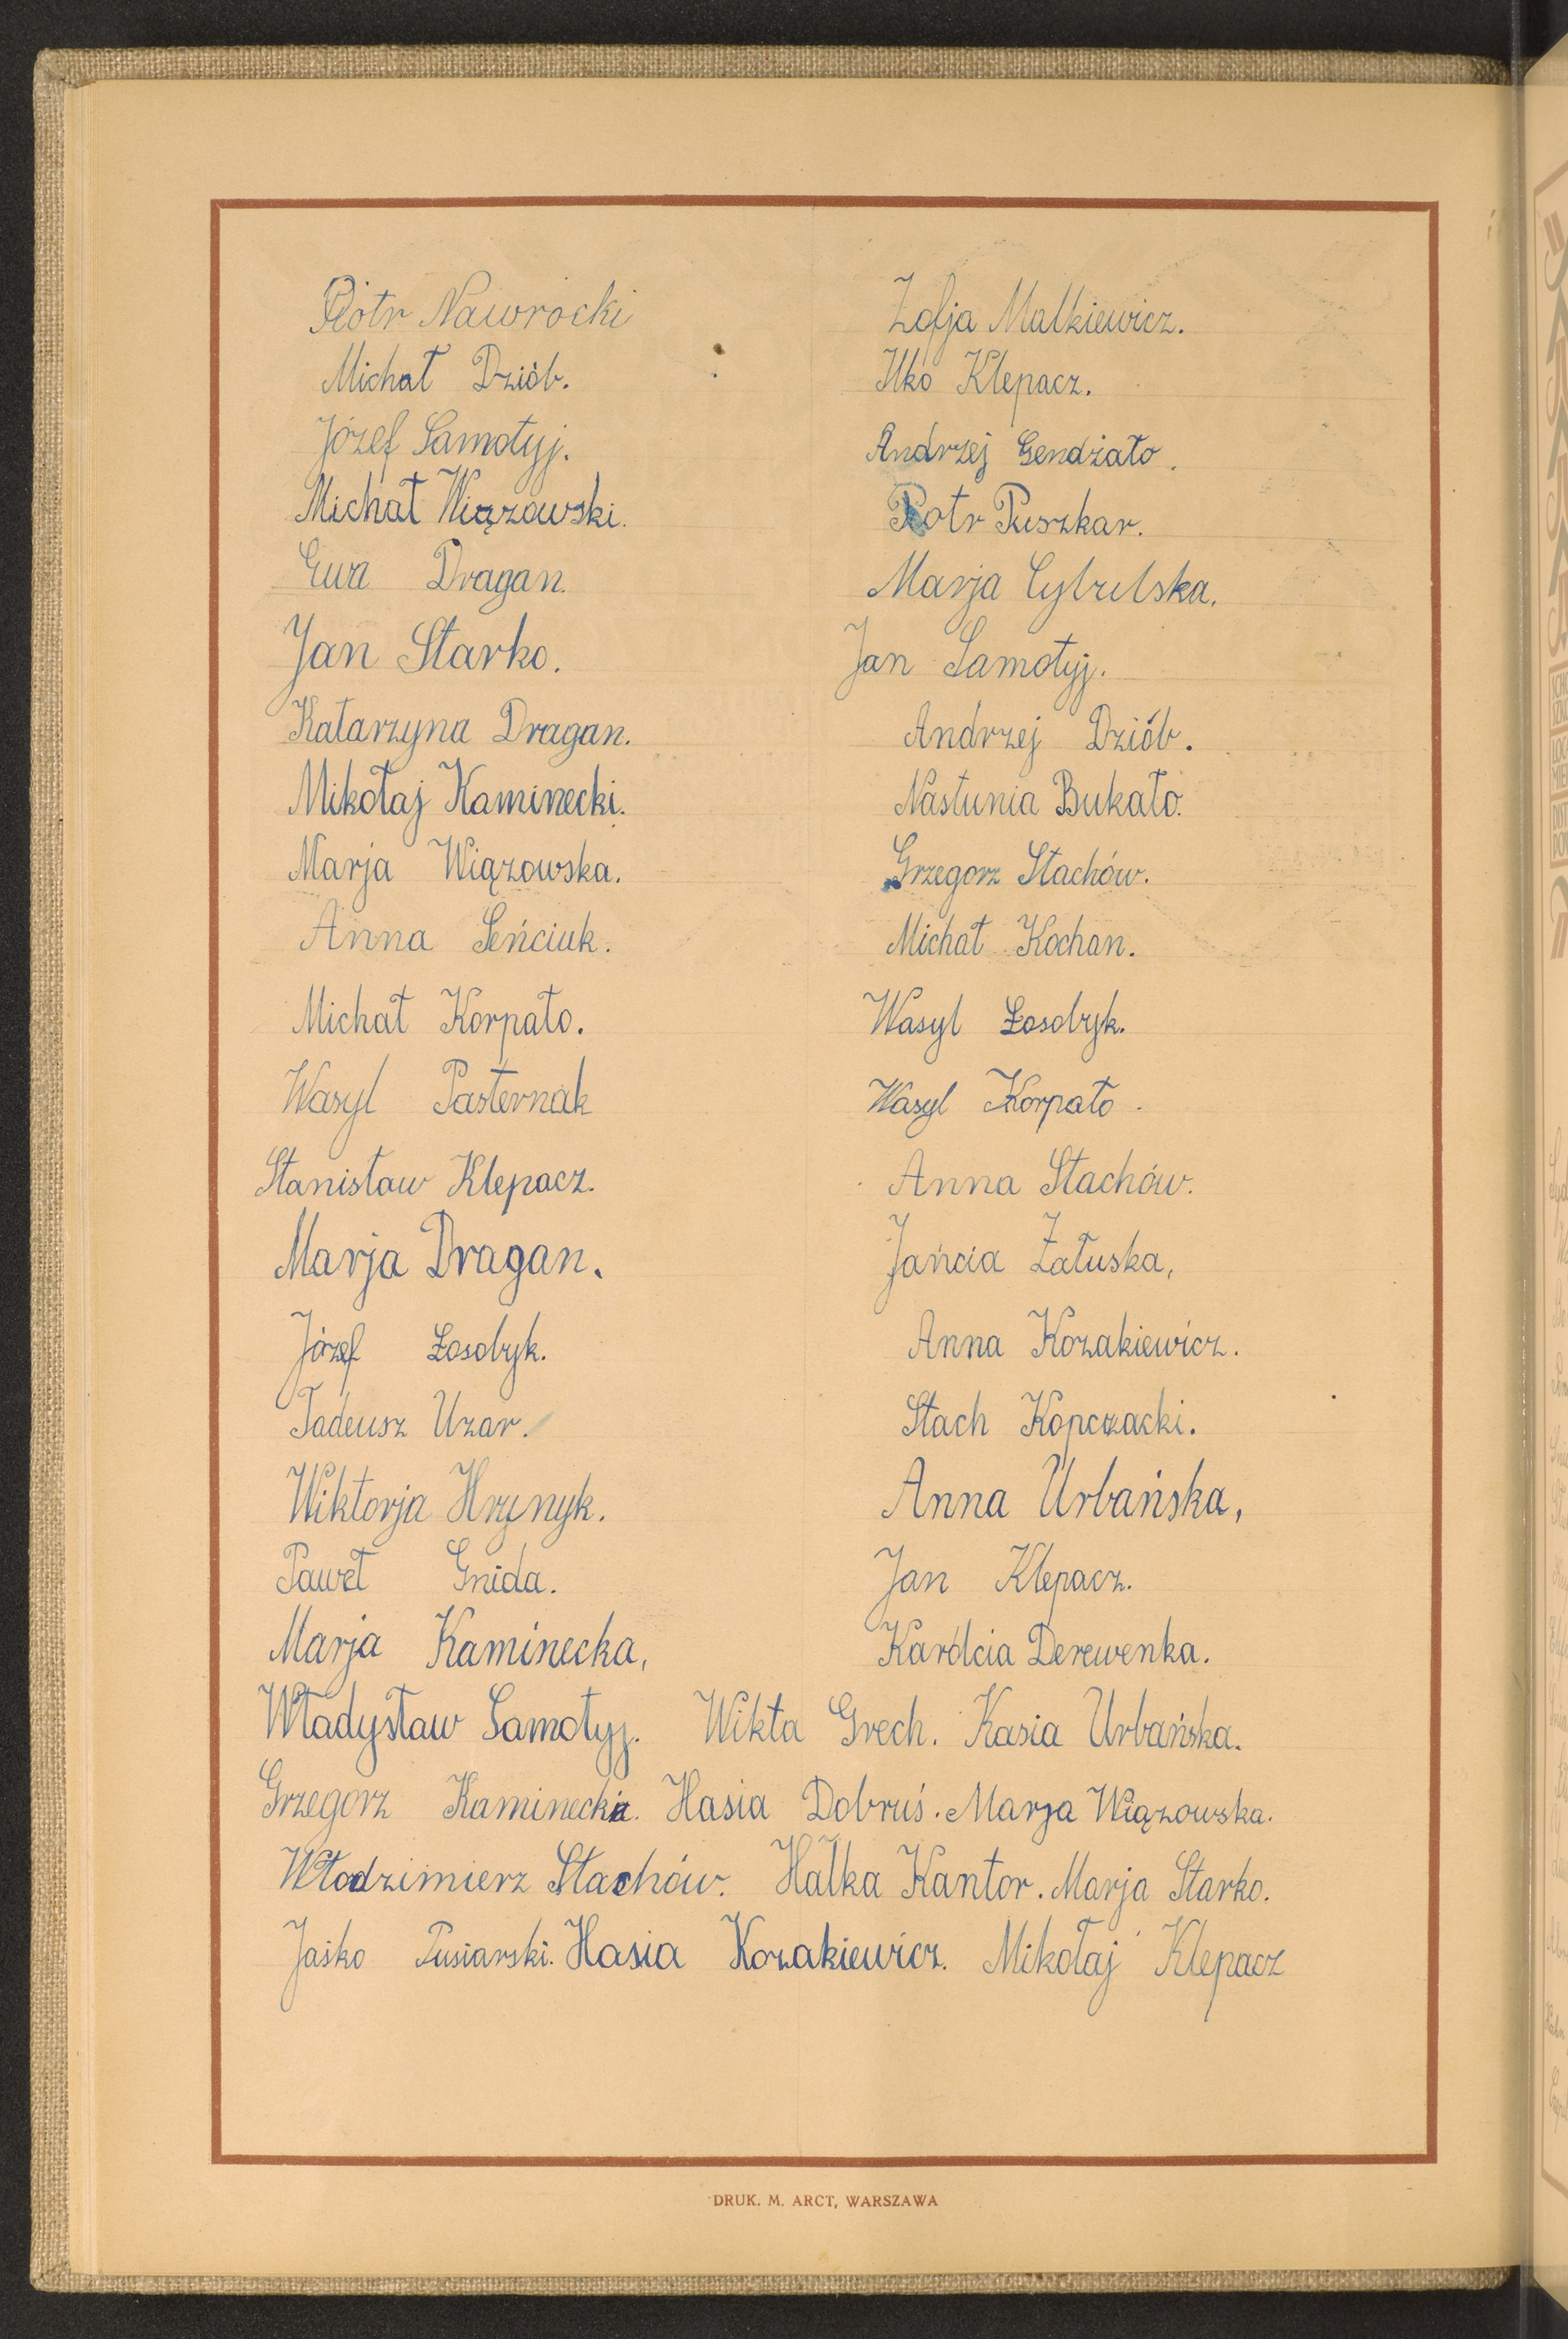 Piotr Nawrocki
Michał Dziób.
Józef Samotyj.
Michał Wiązowski.
Ewa Dragan.
Jan Starko.
Katarzyna Dragan.
Mikołaj Kaminecki.
Marja Wiązowska.
Anna Seńciuk.
Michał Korpało.
Wasyl Pasternak
Stanisław Klepacz.
Marja Dragan.
Józef Łosobyk.
Tadeusz Uzar.
Wiktorja Hrynyk.
Paweł Gnida.
Marja Kaminecka,
Zofja Malkiewicz.
Ilko Klepacz.
Andrzej Gendżało.
Piotr Puszkar.
Marja Cybulska.
Jan Samotyj.
Andrzej Dziób.
Nastunia Bukało.
Grzegorz Stachów.
Michał Kochan.
Wasyl Łosobyk.
Wasyl Korpało.
Anna Stachów.
Jańcia Załuska,
Anna Kozakiewicz.
Stach Kopczacki.
Anna Urbańska,
Jan Klepacz.
Karólcia Derewenka.
Władysław Samotyj. Wikta Grech. Kasia Urbańska.
Grzegorz Kaminecki. Hasia Dobruś. Marja Wiązowska.
Włodzimierz Stachów. Halka Kantor. Marja Starko.
Jaśko Tusiarski. Hasia Kozakiewicz. Mikołaj Klepacz
DRUK. M. ARCT, WARSZAWA